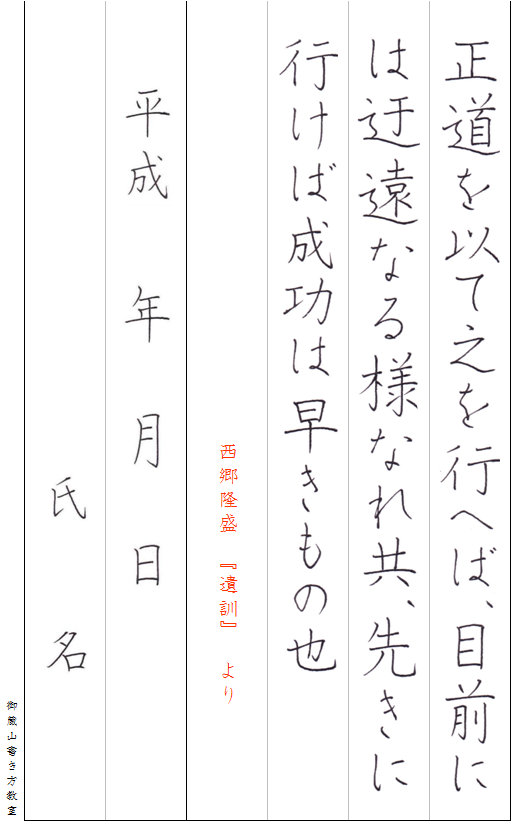 正道を以て之を行へば、目前に
は迂遠なる様なれ共、先きに
行けば成功は早きもの也
西郷隆盛 『遺訓』 より
平成 年 月 日
氏名
御蔵山書き方教室